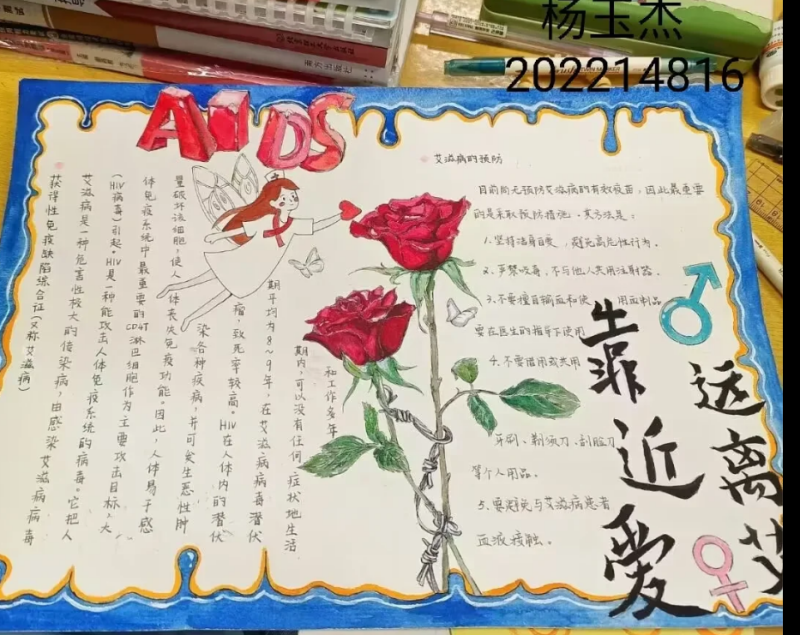 杨玉杰
202214816
AIDS
获得性免疫缺陷综合征(又称艾滋病)
艾滋病是一种危害性极大的传染病,由感染艾滋病病毒
(HIV病毒)引起,HIV是一种能攻击人体免疫系统的病毒。它把人
体免疫系统中最重要的CD4T淋巴细胞作为主要攻击目标,大
量破坏该细胞,使人体丧失免疫功能。因此,人体易于感
染各种疾病,并可发生恶性肿
瘤,致死率较高。HIV在人体内的潜伏
期平均为8~9年,在艾滋病病毒潜伏
期内,可以没有任何症状地生活
和工作多年
艾滋病的预防
目前尚无预防艾滋病的有效疫苗,因此最重要
的是采取预防措施。其方法是:
1.坚持洁身自爱,避免高危性行为。
2.严禁吸毒,不与他人共用注射器。
3.不要擅自输血和使用血制品
要在医生的指导下使用
4.不要借用或共用
牙刷、剃须刀、刮脸刀
等个人用品。
5.要避免与艾滋病患者
血液接触。
靠近爱
远离艾